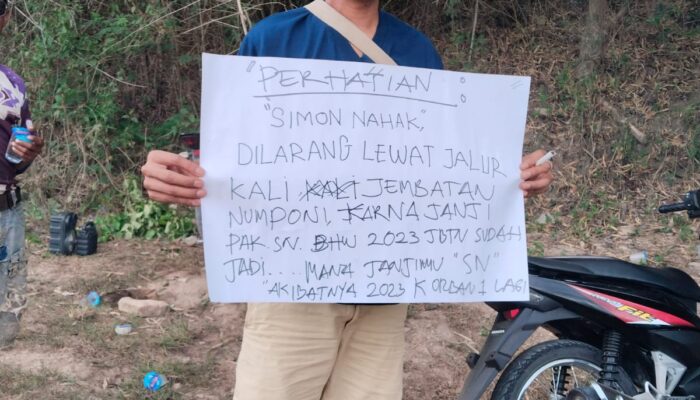 "PERHATIAN :
"SIMON NAHAK",
DILARANG LEWAT JALUR
KALI KALI JEMBATAN
NUMPONI, KARNA JANJI
PAK SN. BHW 2023 JBTN SUDAH
JADI.... MANA JANJIMU "SN"
"AKIBATNYA 2023 KORBAN 1 LAGI
Fit